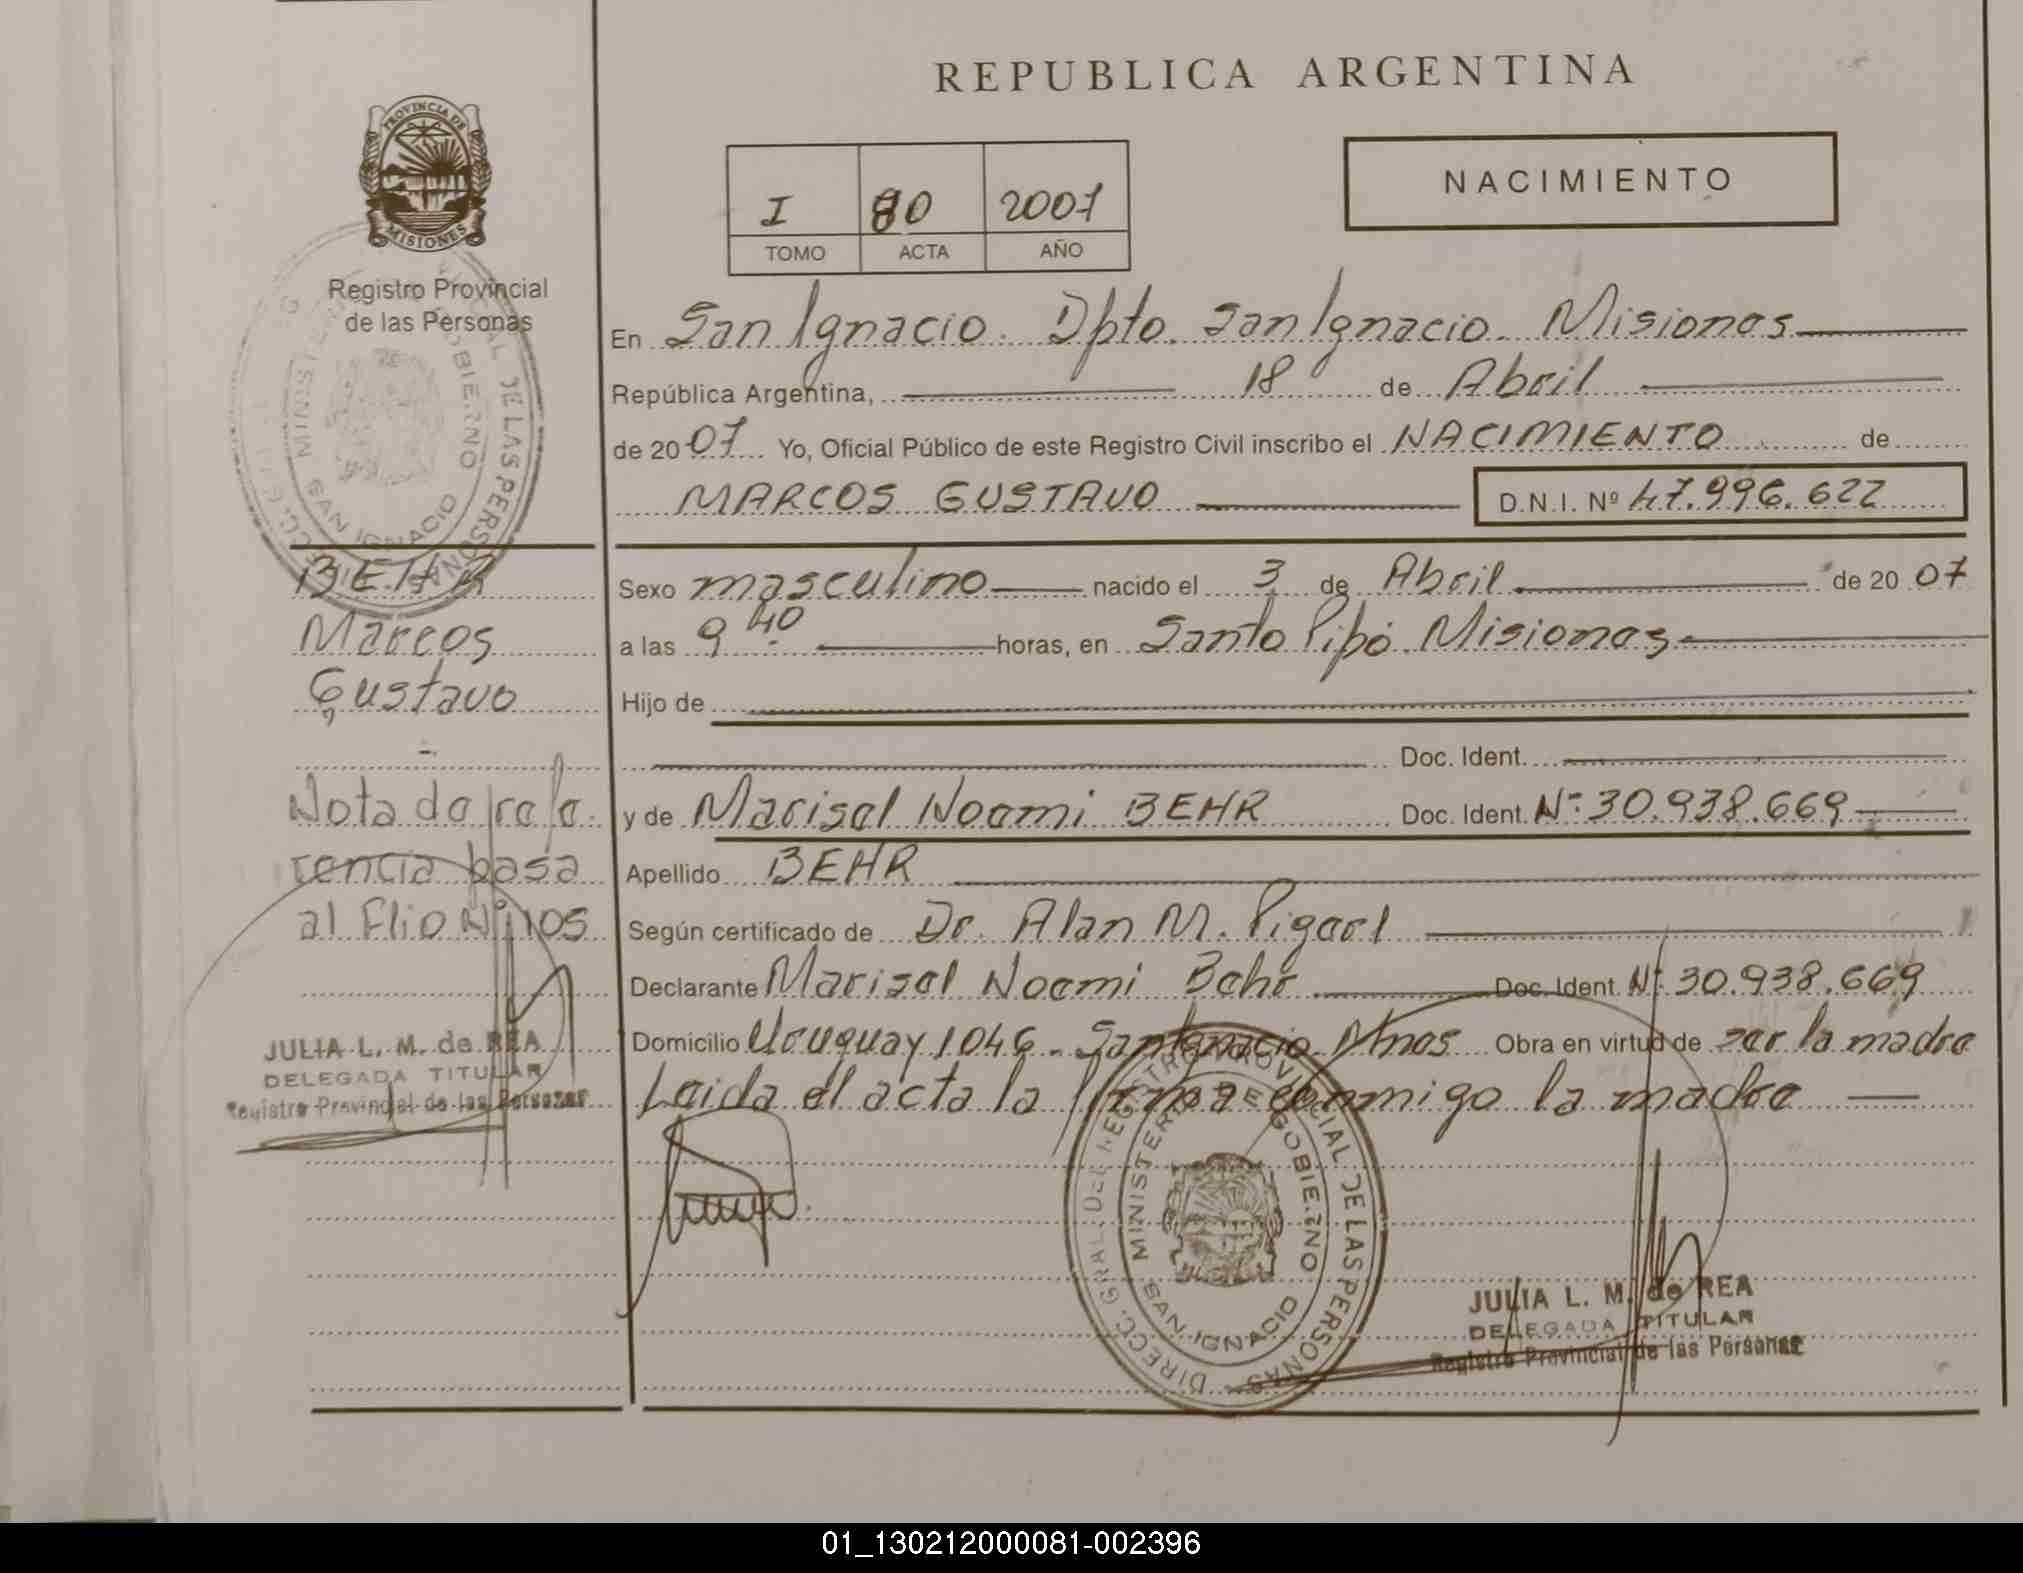 REPUBLICA ARGENTINA
PROVINCIA DE
MISIONES
Registro Provincial
de las Personas
NACIMIENTO
I 80 2007
TOMO ACTA AÑO
En San Ignacio. Dpto. San Ignacio. Misiones
República Argentina, 18 de Abril
de 2007 Yo, Oficial Público de este Registro Civil inscribo el NACIMIENTO de
MARCOS GUSTAVO D.N.I. Nº 47.996.622
Sexo masculino nacido el 3 de Abril de 20 07
a las 9 40 horas, en Santo Pipó Misiones
Hijo de
Doc. Ident.
y de Marisel Noemi BEHR Doc. Ident. Nº 30.938.669
Apellido BEHR
Según certificado de Dr. Alan M.
Declarante Marisel Noemi Behr Doc. Ident. Nº 30.938.669
Domicilio Uruguay 1046 - San Ignacio Mnes Obra en virtud de ser la madre
Leida el acta la firma conmigo la madre
BEHR
Marcos
Gustavo
Nota de refe
rencia pasa
al Flio Nº 105
JULIA L. M. de REA
DELEGADA TITULAR
Registro Provincial de las Personas
DIRECC. GRAL. DEL REGISTRO PROVINCIAL DE LAS PERSONAS
MINISTERIO DE GOBIERNO
SAN IGNACIO
JULIA L. M. de REA
DELEGADA TITULAR
Registro Provincial de las Personas
01_130212000081-002396